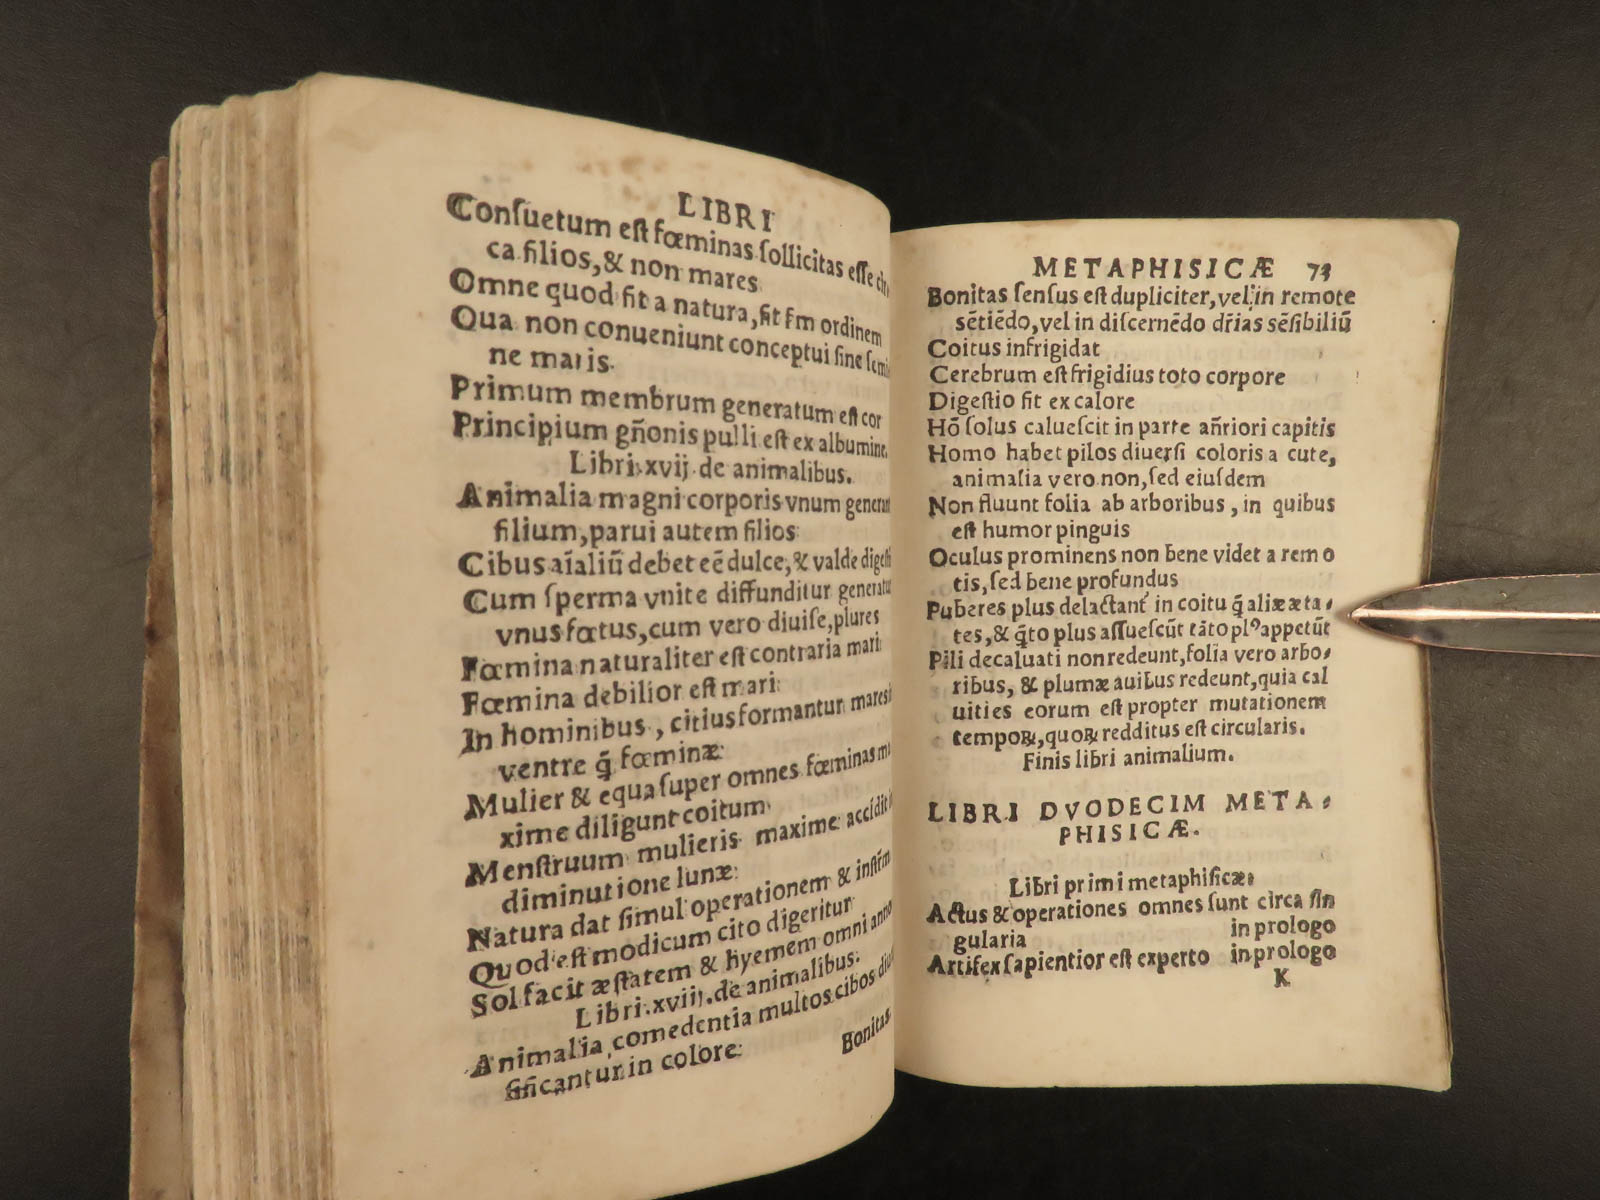 LIBRI
Conſuetum eſt fœminas ſollicitas eſſe cir
ca filios, & non mares
Omne quod fit a natura, fit ſm ordinem
Qua non conueniunt conceptui ſine ſemi
ne maris.
Primum membrum generatum eſt cor
Principium gñonis pulli eſt ex albumine.
Libri.xvij.de animalibus.
Animalia magni corporis vnum generant
filium, parui autem filios
Cibus aīaliū debet eē dulce, & valde digeſti
Cum ſperma vnite diffunditur generatur
vnus fœtus, cum vero diuiſe, plures
Fœmina naturaliter eſt contraria mari
Fœmina debilior eſt mari
In hominibus, citius formantur mares i
ventre q̄ fœminæ
Mulier & equa ſuper omnes fœminas ma
xime diligunt coitum
Menſtruum mulieris maxime accidit i
diminutione lunæ
Natura dat ſimul operationem & inſtr̄m
Quod eſt modicum cito digeritur
Sol facit æſtatem & hyemem omni anno
Libri.xviij.de animalibus.
Animalia comedentia multos cibos diuer
ſiñcantur in colore
Bonitas
METAPHISICÆ 73
Bonitas ſenſus eſt dupliciter, vel in remote
sētiēdo, vel in diſcernēdo dr̄ias sēſibiliū
Coitus infrigidat
Cerebrum eſt frigidius toto corpore
Digeſtio fit ex calore
Hō ſolus calueſcit in parte añriori capitis
Homo habet pilos diuerſi coloris a cute,
animalia vero non, ſed eiuſdem
Non fluunt folia ab arboribus, in quibus
eſt humor pinguis
Oculus prominens non bene videt a remo
tis, ſed bene profundus
Puberes plus delactant' in coitu q̄ aliæ æta-
tes, & q̄to plus aſſueſcūt tāto plꝰ appetūt
Pili decaluati non redeunt, folia vero arbo-
ribus, & plumæ auibus redeunt, quia cal
uities eorum eſt propter mutationem
tempoꝝ, quoꝝ redditus eſt circularis.
Finis libri animalium.
LIBRI DVODECIM META-
PHISICÆ.
Libri primi metaphiſicæ.
Actus & operationes omnes ſunt circa ſin
gularia in prologo
Artifex ſapientior eſt experto in prologo
K